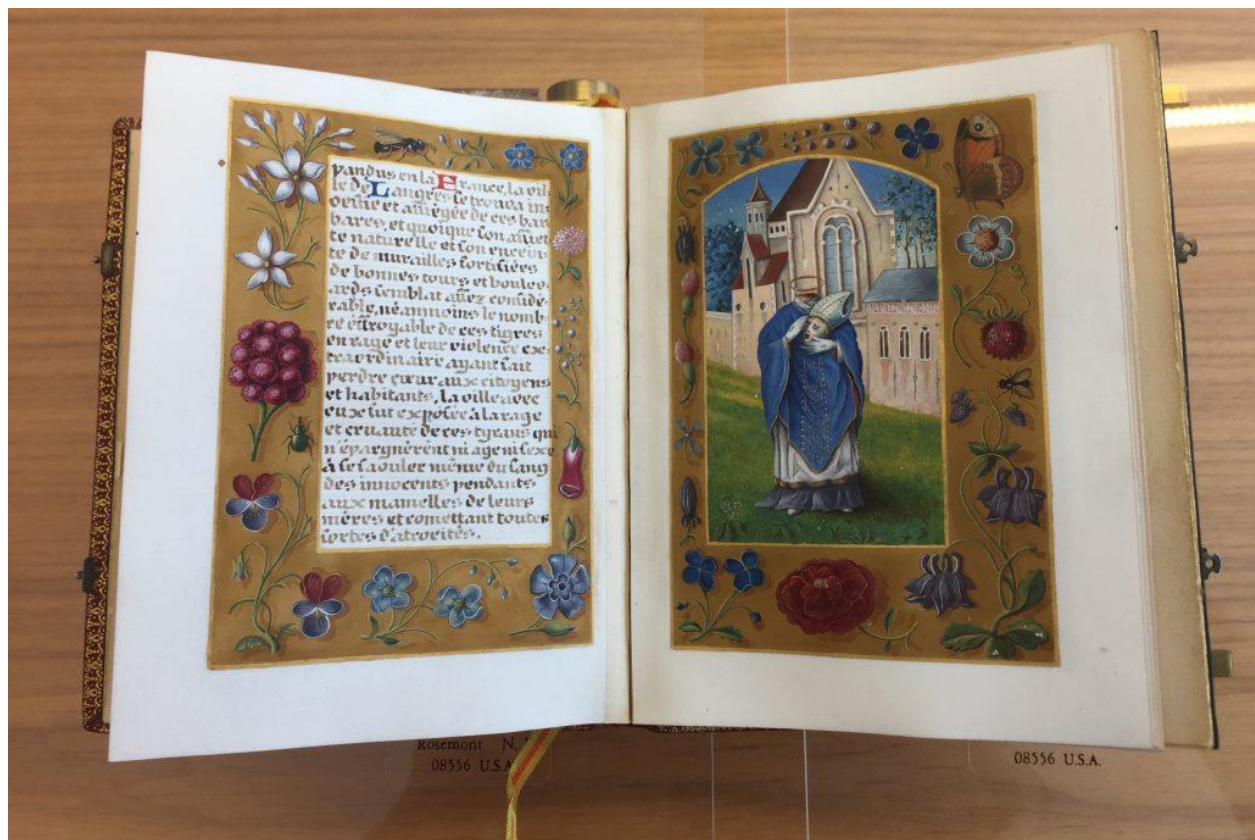 pandus en la France, la vil-
le de Langres se trouva in-
vestie et assiégée de ces bar-
bares, et quoique son assiet-
te naturelle et son encein-
te de murailles fortifiées
de bonnes tours et boulev-
ards semblat assez considé-
rable, néammoins le nomb-
re effroyable de ces tigres
enragé et leur violence ex-
traordinaire ayant fait
perdre cœur aux citoyens
et habitants, la ville avec
eux fut exposée à la rage
et cruauté de ces tyrans qui
n'épargnèrent ni age ni sexe
à se saouler même du sang
des innocents pendants
aux mamelles de leurs
mères et comettant toutes
sortes d'atrocités.
Rosemont N.
08556 U.S.A.
08556 U.S.A.